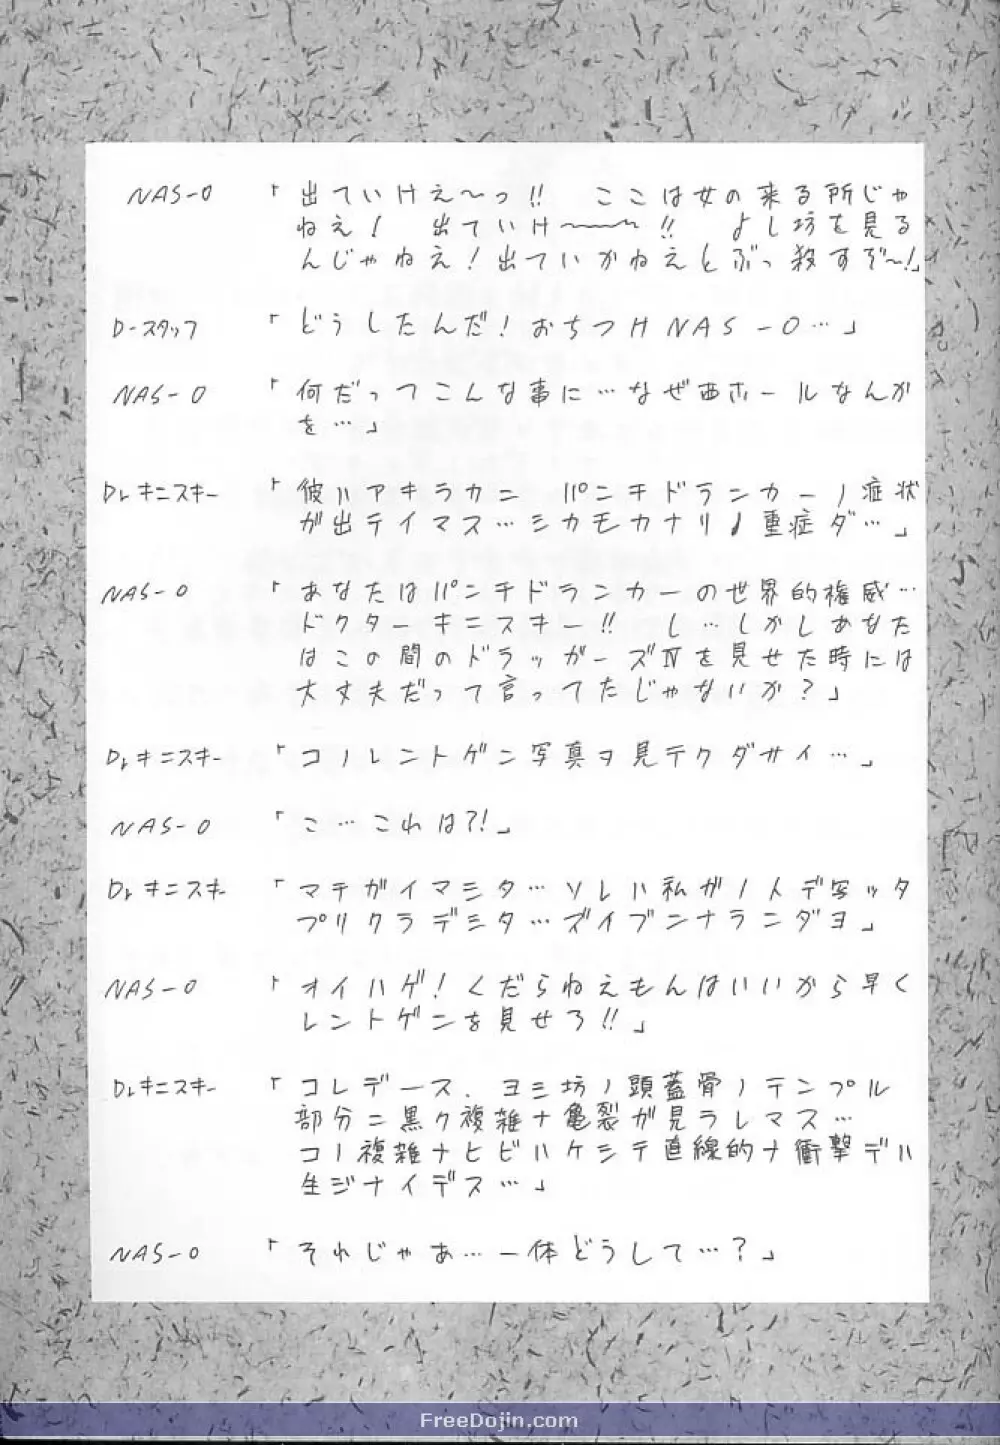 NAS-O 「出ていけえ～っ!! ここは女の来る所じゃ
ねえ! 出ていけ～～～!! よし坊を見る
んじゃねえ!出ていかねえとぶっ殺すぞ～!」
D-スタッフ 「どうしたんだ!おちつけNAS-O…」
NAS-O 「何だってこんな事に…なぜ西ホールなんか
を…」
Dr.キニスキー 「彼ハアキラカニ パンチドランカーノ症状
が出テイマス…シカモカナリノ重症ダ…」
NAS-O 「あなたはパンチドランカーの世界的権威…
ドクターキニスキー!! し…しかしあなた
はこの間のドラッガーズⅣを見せた時には
大丈夫だって言ってたじゃないか?」
Dr.キニスキー 「コノレントゲン写真ヲ見テクダサイ…」
NAS-O 「こ…これは?!」
Dr.キニスキー 「マチガイマシタ…ソレハ私ガノ人デ写ッタ
プリクラデシタ…ズイブンナランダヨ」
NAS-O 「オイハゲ!くだらねえもんはいいから早く
レントゲンを見せろ!!」
Dr.キニスキー 「コレデース.ヨシ坊ノ頭蓋骨ノテンプル
部分ニ黒ク複雑ナ亀裂が見ラレマス…
コノ複雑ナヒビハケシテ直線的ナ衝撃デハ
生ジナイデス…」
NAS-O 「それじゃあ…一体どうして…?」
FreeDojin.com